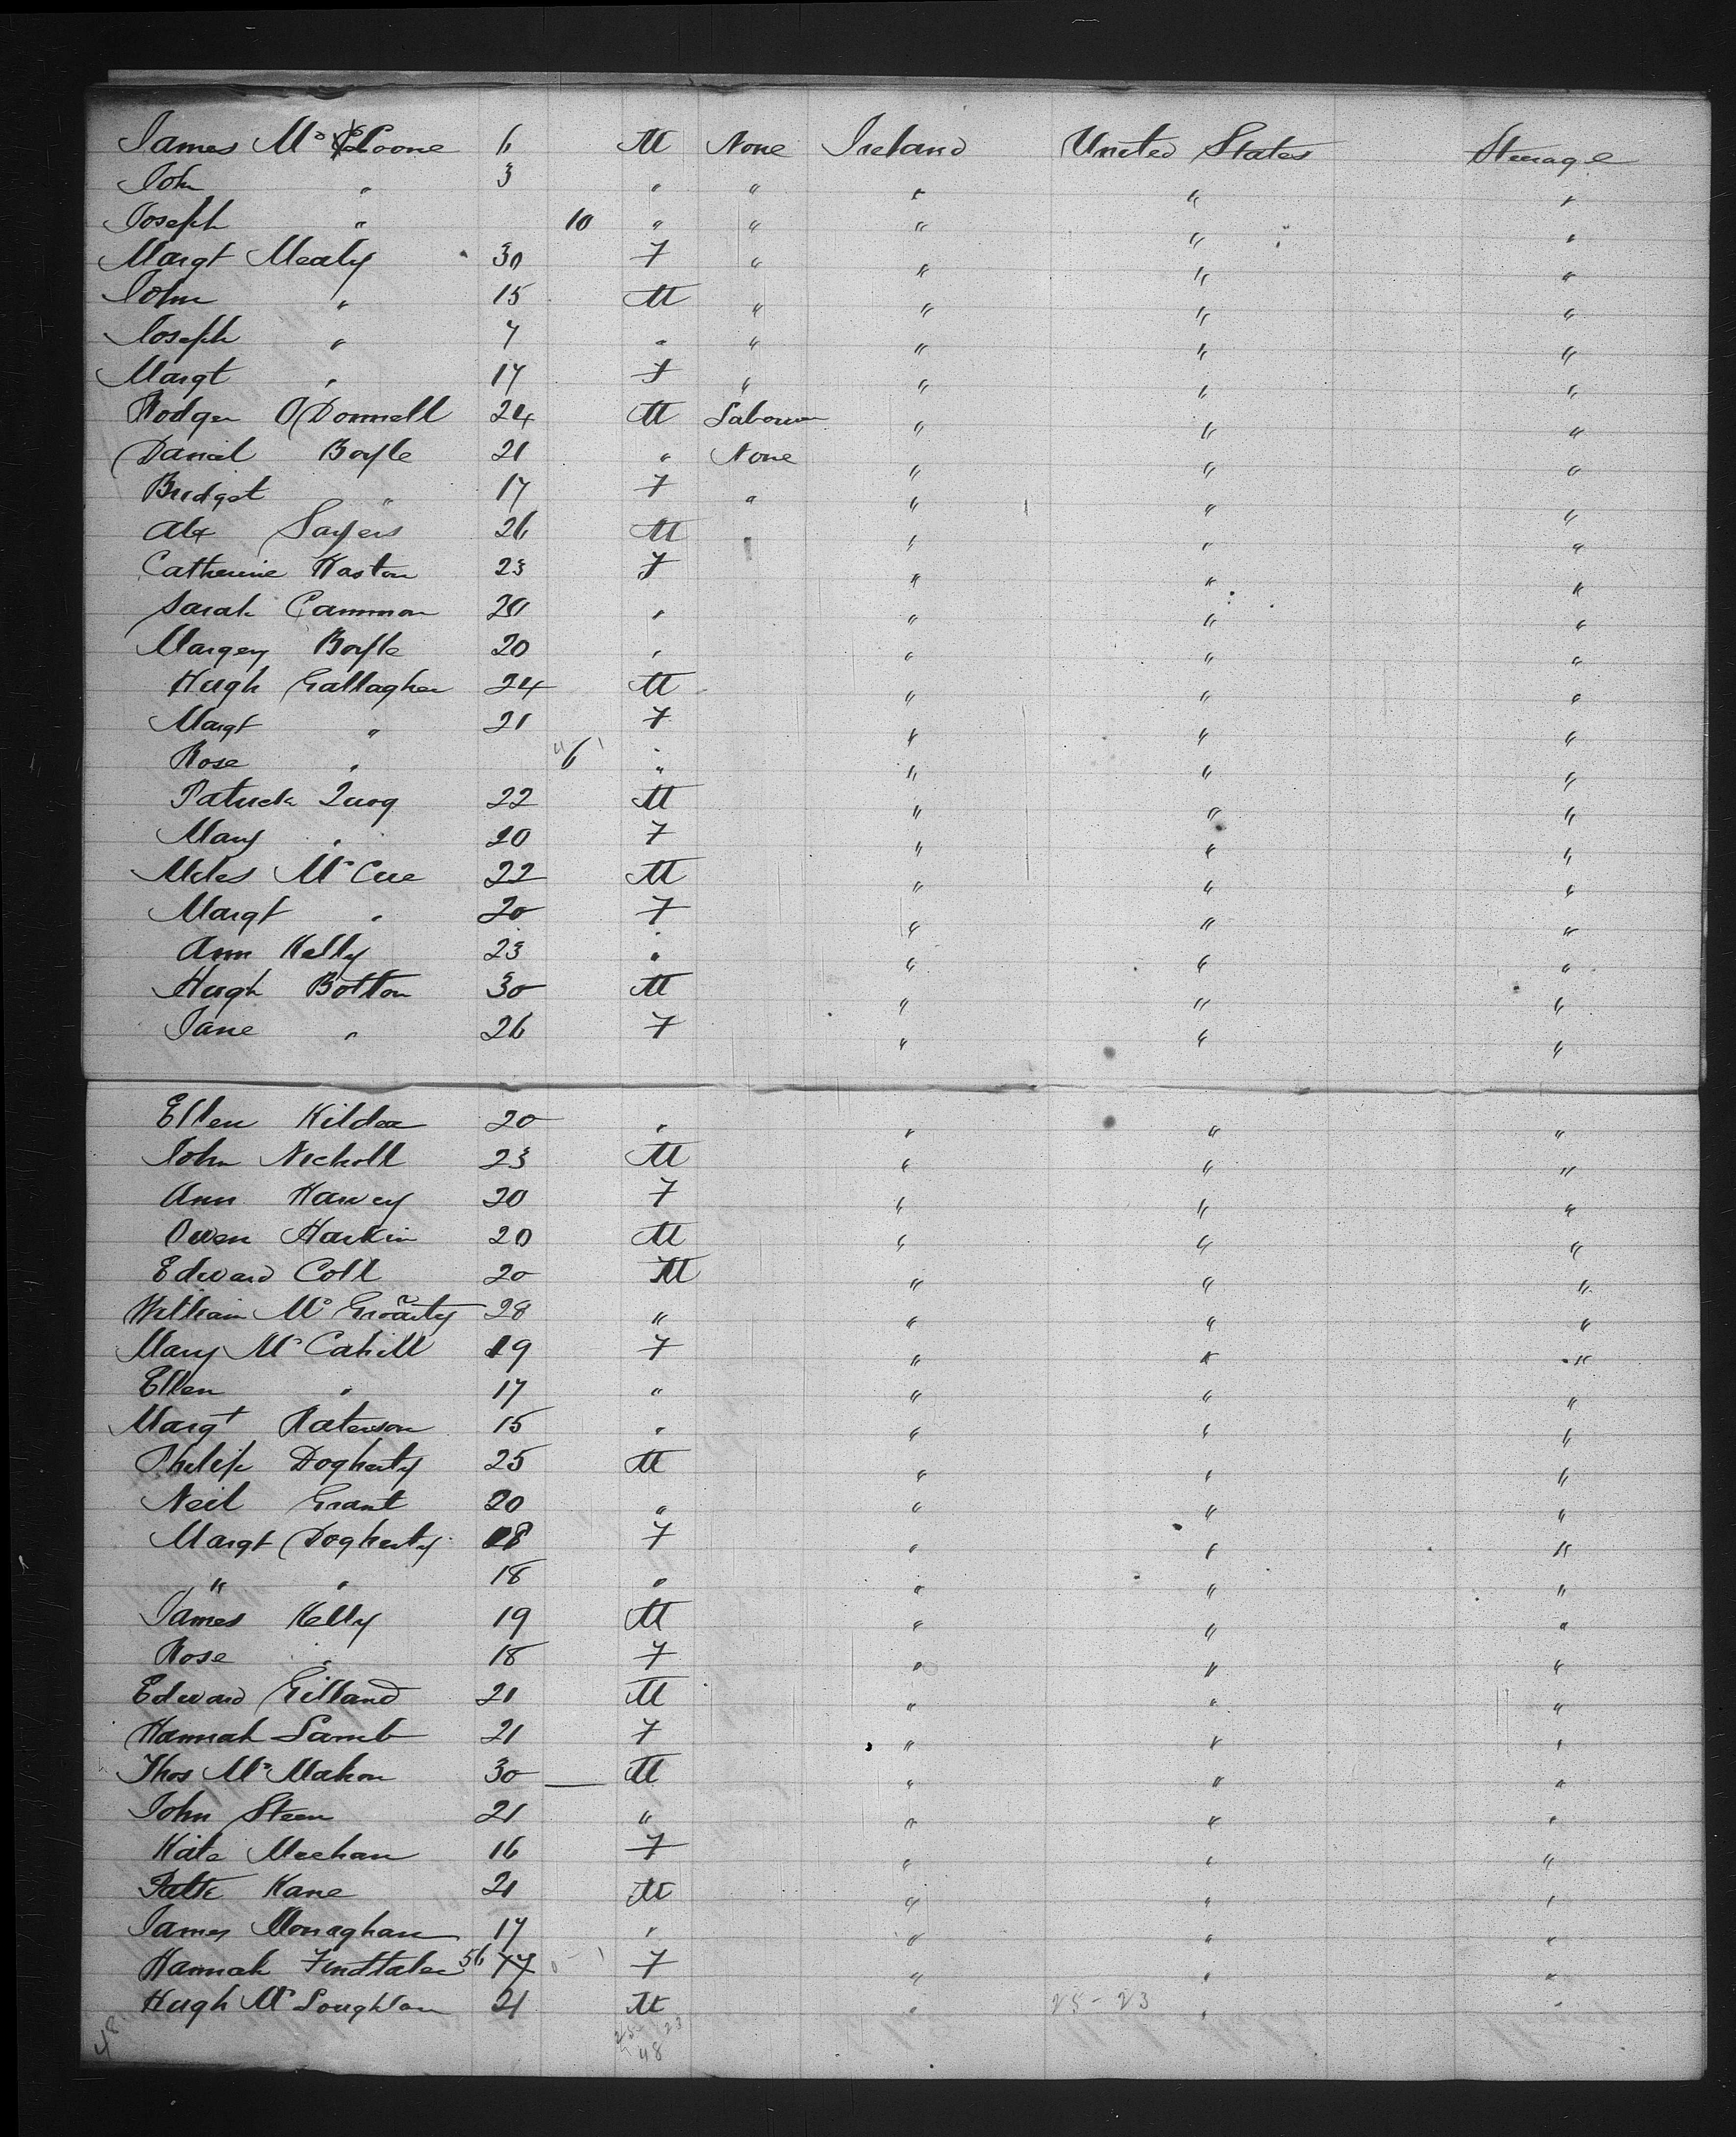 James Mc Cloone 6 M None Ireland United States Steerage
John " 3 " " " " "
Joseph " 10 " " " " "
Margt Mealy 30 F " " " "
John " 15 M " " " "
Joseph " 7 " " " " "
Margt " 17 F " " " "
Rodger O'Donnell 24 M Labourer " " "
Daniel Boyle 21 " None " " "
Bridget " 17 F " " " "
Alex Sayers 26 M " " " "
Catherine Haston 23 F " " "
Sarah Cammon 20 " " " "
Margery Boyle 20 " " " "
Hugh Gallagher 24 M " " "
Margt " 21 F " " "
Rose " 6 " " " "
Patrick Quog 22 M " " "
Mary " 20 F " " "
Miles Mc Cue 22 M " " "
Margt " 20 F " " "
Ann Kelly 23 " " " "
Hugh Botton 30 M " " "
Jane " 26 F " " "
Ellen Kildea 20 " " " "
John Nicholl 23 M " " "
Ann Harvey 20 F " " "
Owen Harkin 20 M " " "
Edward Coll 20 M " " "
William Mc Groarty 28 " " " "
Mary Mc Cahill 19 F " " "
Ellen " 17 " " " "
Margt Paterson 15 " " " "
Philip Dogherty 25 M " " "
Neil Grant 20 " " " "
Margt Dogherty 18 F " " "
" " 18 " " " "
James Kelly 19 M " " "
Rose " 18 F " " "
Edward Gilland 21 M " " "
Hannah Lamb 21 F " " "
Thos Mc Mahon 30 M " " "
John Steen 21 " " " "
Kate Meehan 16 F " " "
Patk Kane 21 M " " "
James Monaghan 17 " " " "
Hannah 56 F " " "
Hugh Mc Loughlan 21 M " 25-23 " "
48 25 23
48